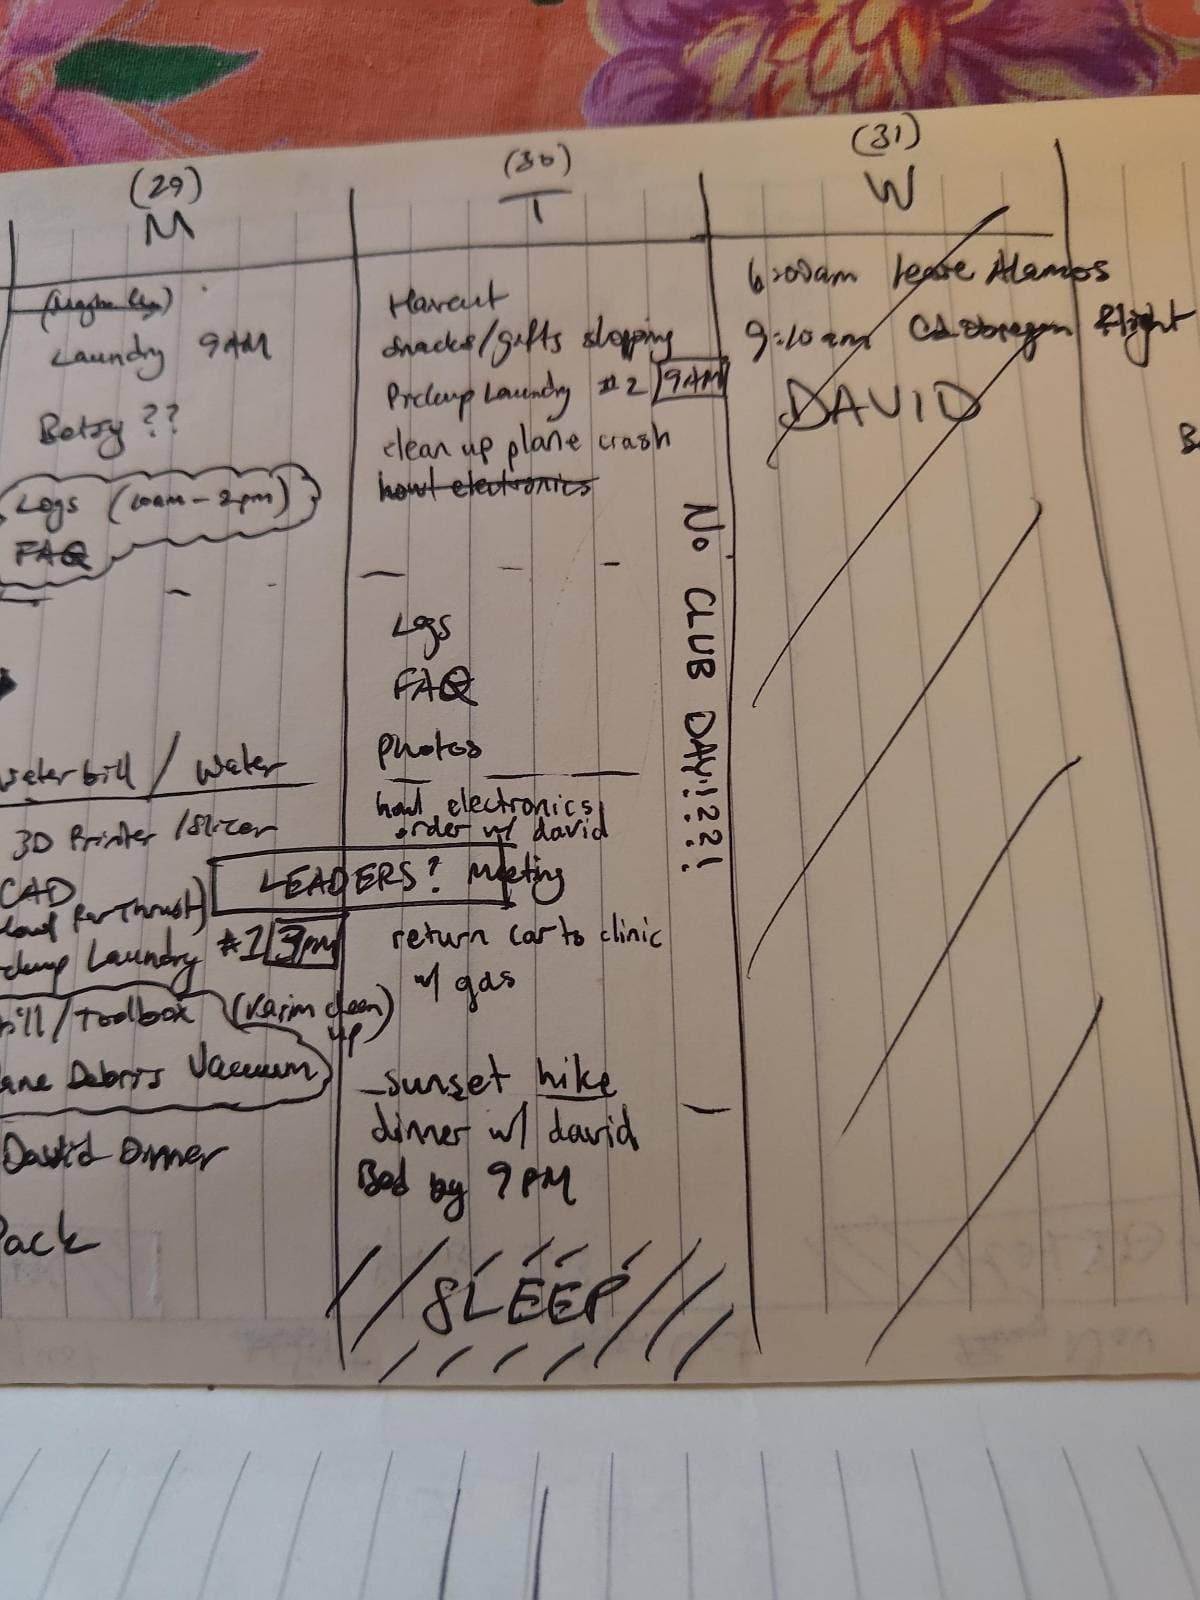 (29)
M
Laundry 9AM
Betsy ??
Logs (10am - 2pm)
FAQ
bill / Water
3D Printer / Slicer
CAD
Laundry #1 3pm
/ Toolbox (Karim clean up)
Debris Vacuum
David Dinner
Pack
(30)
T
Harcut
snacks/gifts shopping
Pickup Laundry #2 9AM
clean up plane crash
howt electronics
Logs
FAQ
photos
electronics
order w/ david
LEADERS? Meeting
return car to clinic
w/ gas
sunset hike
dinner w/ david
Bed by 9PM
SLEEP
NO CLUB DAY!!??!
(31)
W
6:00am leave Alamos
9:10am Cd Obregon flight
DAVID